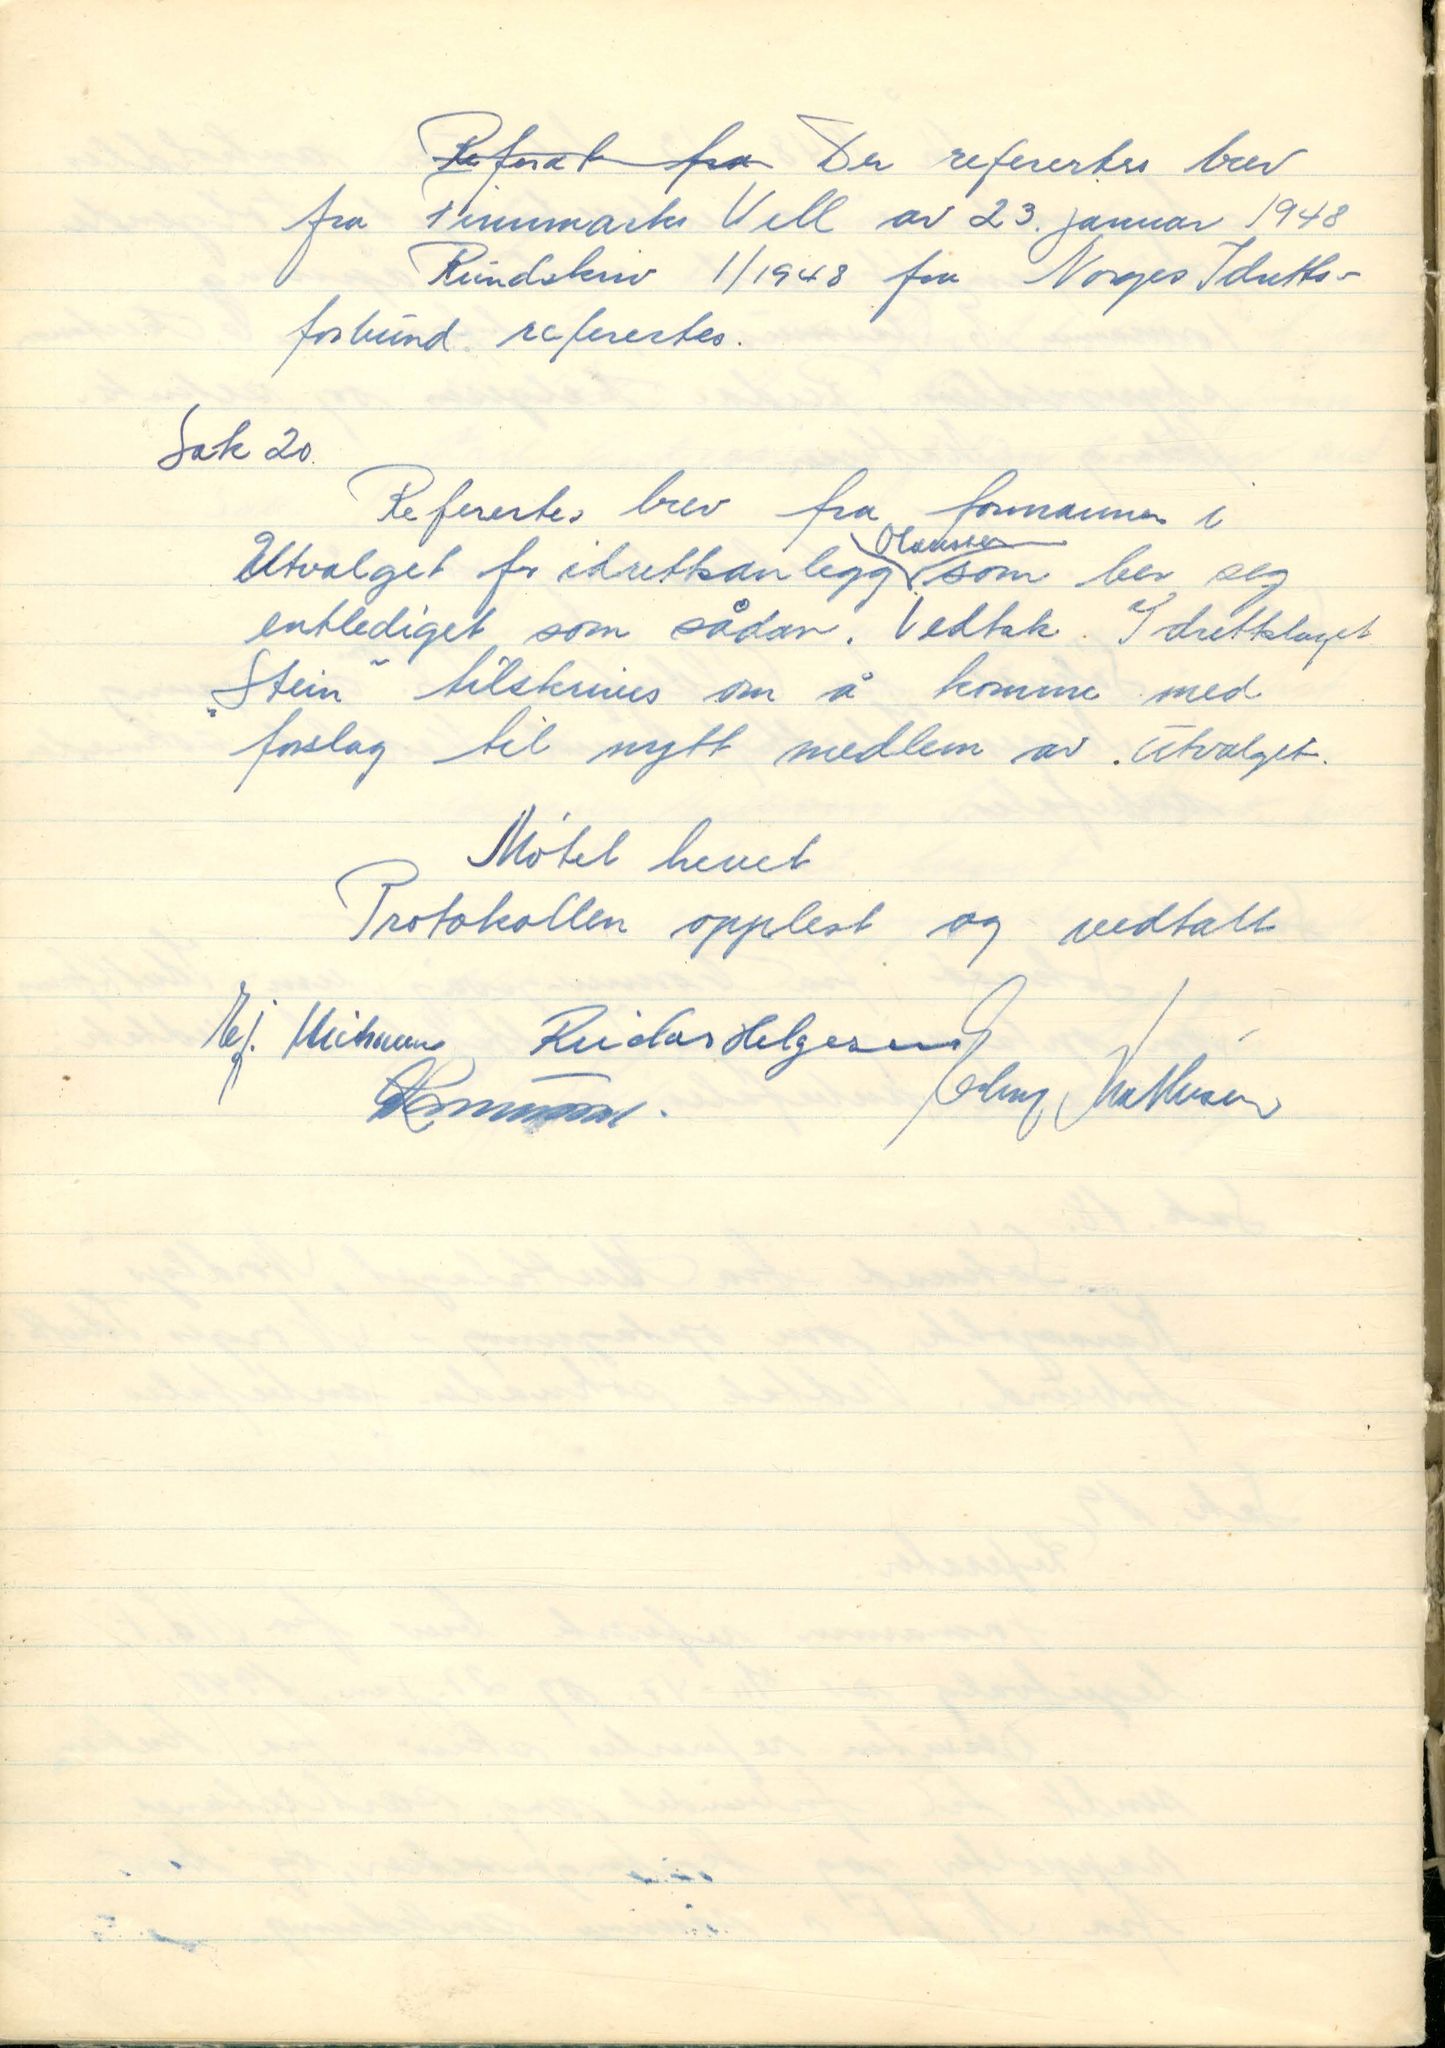 Referat fra Der refererters brev
fra Finnmarks Vell av 23. januar 1948
Rundskriv 1/1948 fra Norges Idretts-
forbund refertertes.
Sak 20.
Referertes brev fra formannen i
Olaussen
Utvalget for idrettsanlegg som ber seg
entlediget som sådan. Vedtak. Idrettslaget
„Stein" tilskrives om å komme med
forslag til nytt medlem av utvalget.
Møtet hevet
Protokollen opplest og vedtatt
Reidar Helgesen
Erling Mathisen